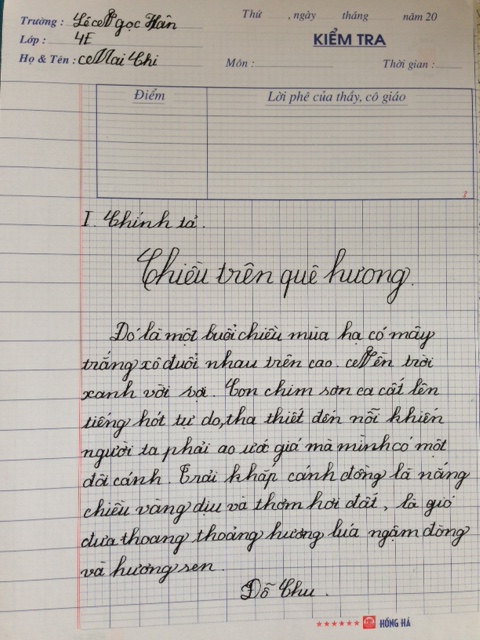 Trường : Lê Ngọc Hân
Thứ , ngày tháng năm 20
Lớp : 4E
KIỂM TRA
Họ & Tên : Mai Chi
Môn : Thời gian :
Điểm Lời phê của thầy, cô giáo
I. Chính tả.
Chiều trên quê hương.
Đó là một buổi chiều mùa hạ có mây
trắng xô đuổi nhau trên cao. Nền trời
xanh vời vợi. Con chim sơn ca cất lên
tiếng hót tự do, tha thiết đến nỗi khiến
người ta phải ao ước giá mà mình có một
đôi cánh. Trải khắp cánh đồng là nắng
chiều vàng dịu và thơm hơi đất, là gió
đưa thoang thoảng hương lúa ngậm đòng
và hương sen.
Đỗ Chu.
HỒNG HÀ